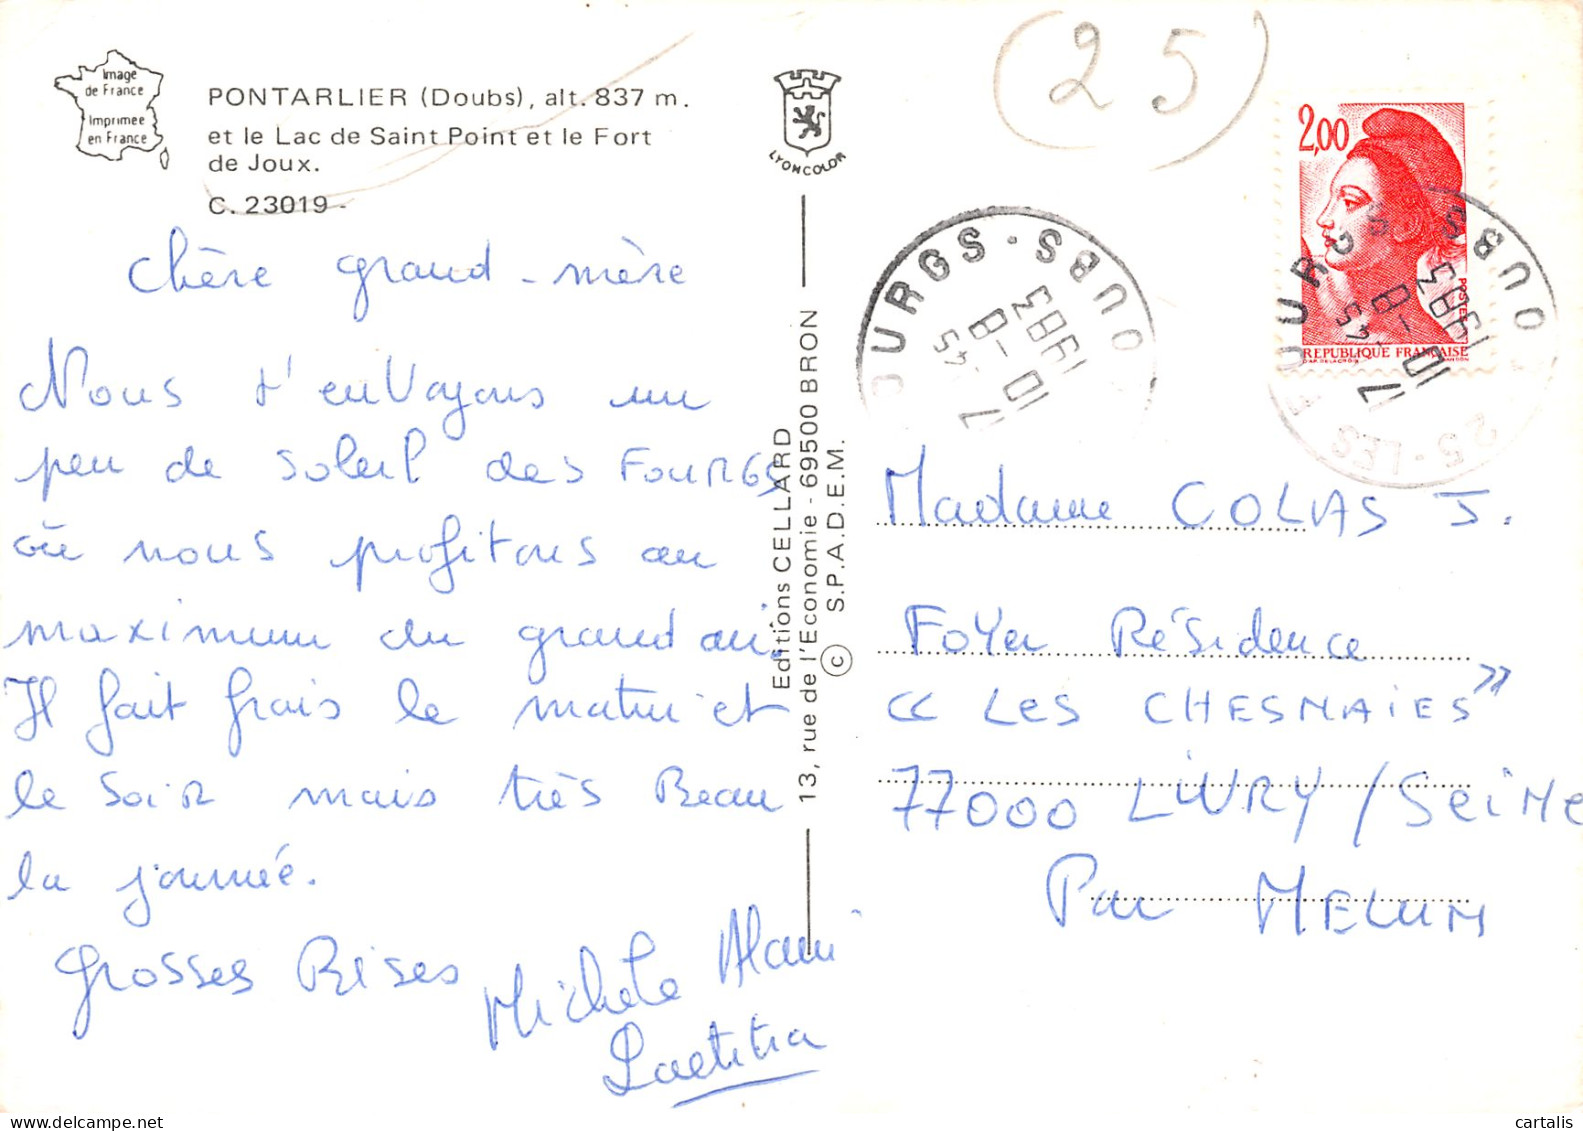 Image
de France
Imprimee
en France
PONTARLIER (Doubs), alt. 837 m.
et le Lac de Saint Point et le Fort
de Joux.
C. 23019 -
LYONCOLOR
(25)
2,00
POSTES
REPUBLIQUE FRANÇAISE
OURGS · OUBS
17 45
10 - 8
1983
25 - LES OURGS OUBS
17 45
10 - 8
1983
Chère grand-mère
Nous t'envoyons un
peu de soleil des FOURGS
où nous profitons au
maximum du grand air.
Il fait frais le matin et
le soir mais très Beau
la journée.
Grosses Bises
Michèle Alain
Laetitia
Editions CELLARD
13, rue de l'Economie - 69500 BRON
© S.P.A.D.E.M.
Madame COLAS J.
Foyer Résidence
« Les CHESNAIES »
77000 LIVRY / SEINE
Par MELUN
cartalis